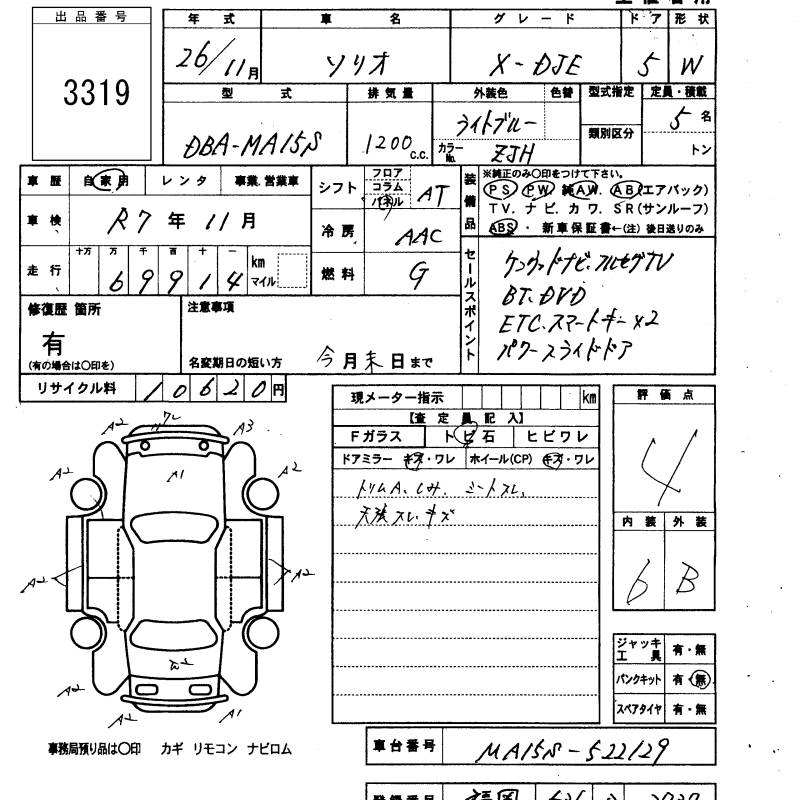 出品番号
3319
年式 車名 グレード ドア 形状
26/11月 ソリオ X-DJE 5 W
型式 排気量 外装色 色替 型式指定 定員・積載
DBA-MA15S 1200c.c. ライトブルー 5名
カラーNo. ZJH 類別区分 トン
車歴 自家用 レンタ 事業.営業車
シフト フロア コラム パネル AT
装備品 ※純正のみ〇印をつけて下さい。
PS PW 純AW. AB(エアバック)
TV. ナビ. カワ. SR(サンルーフ)
ABS・新車保証書←(注)後日送りのみ
車検 R7年11月
冷房 AAC
走行 十万 万 千 百 十 一
69914 km マイル
燃料 G
セールスポイント ケンウッドナビ.フルセグTV
BT.DVD
ETC.スマートキー×2
パワースライドドア
修復歴 箇所
有
(有の場合は〇印を)
注意事項
名変期日の短い方 今月末日まで
リサイクル料 10620円
現メーター指示 km
【査定員記入】
Fガラス トビ石 ヒビワレ
ドアミラー キズ・ワレ ホイール(CP) キズ・ワレ
トリムA.シミ. シートスレ.
天張スレ.キズ
評価点
4
内装 外装
6 B
A2 ワレ A3
A2 A1 A2
A2 A2
A2
A2 A2 A1
ジャッキ工具 有・無
パンクキット 有・無
スペアタイヤ 有・無
事務局預り品は〇印 カギ リモコン ナビロム
車台番号 MA15S-522129